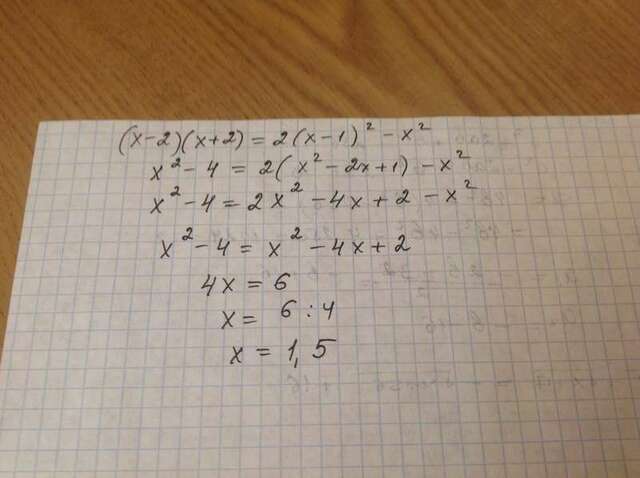 (x-2)(x+2) = 2(x-1)² - x²
x² - 4 = 2(x² - 2x+1) - x²
x² - 4 = 2x² - 4x + 2 - x²
x² - 4 = x² - 4x + 2
4x = 6
x = 6 : 4
x = 1,5